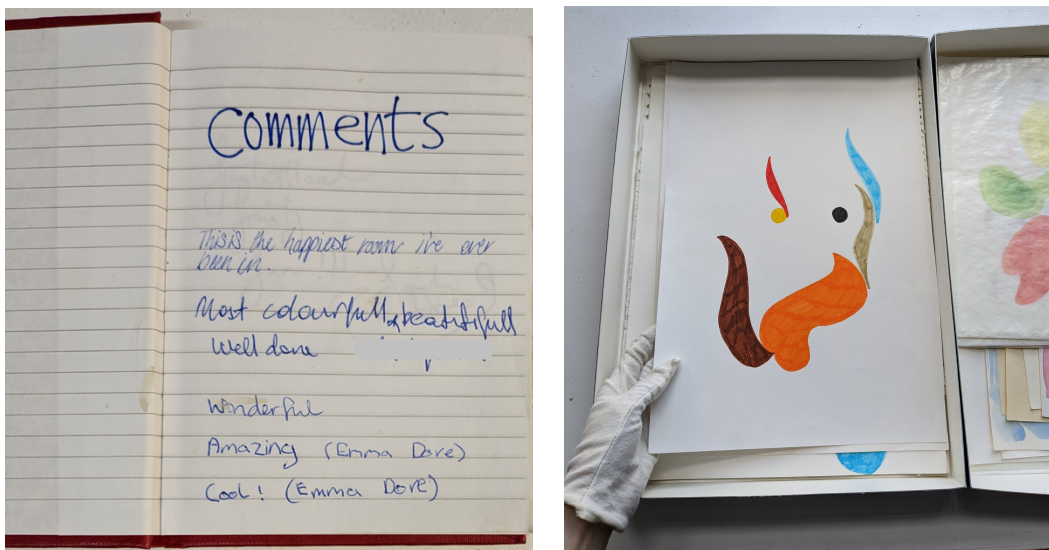 Comments
This is the happiest room i've ever
been in.
Most colourfull & beatifull
Well done
Wonderful
Amazing (Emma Dove)
Cool! (Emma Dove)